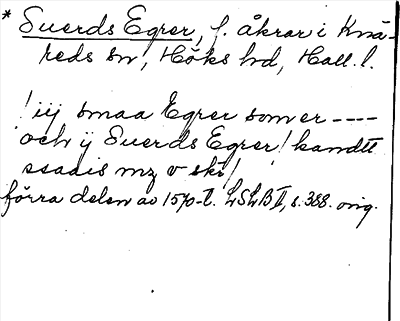 * Suerds Egrer, f. åkrar i Knä-
reds sn, Höks hd, Hall. l.
! iij smaa Egrer som er ----
och ij Suerds Egrer! kandtt
ssaais mz v skr!
förra delen av 1570-t. LSLB II, s. 388. orig.